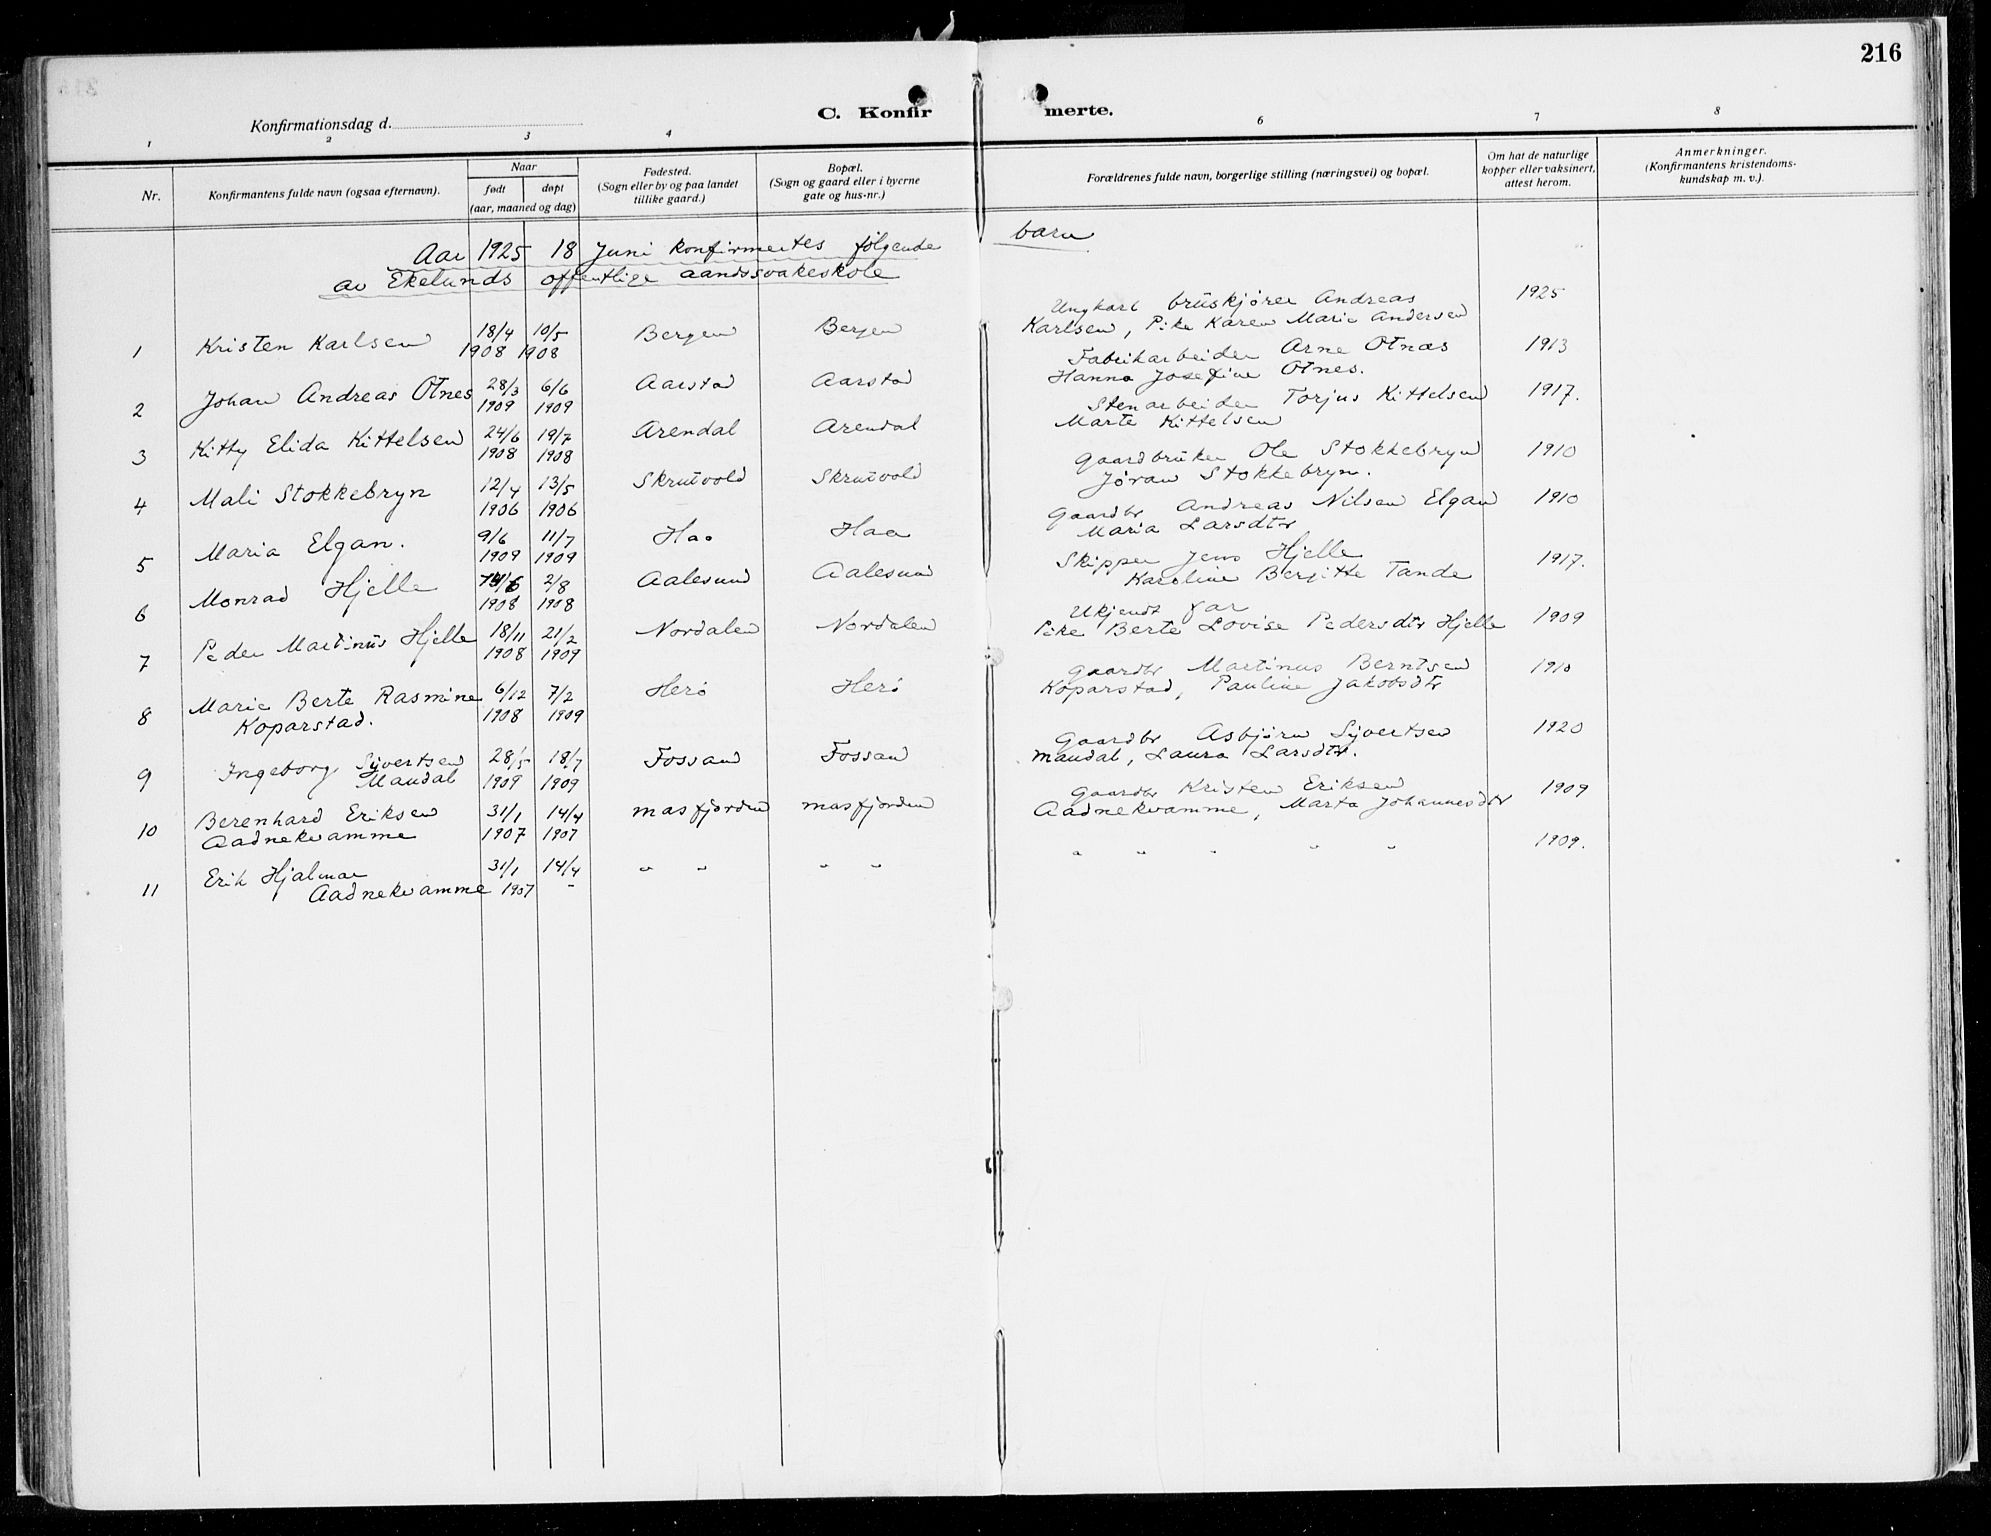 216
C. Konfirmerte.
Konfirmationsdag d.
1 2 3 4 6 7 8
Nr.
Konfirmantens fulde navn (ogsaa efternavn).
Naar
født døpt
(aar, maaned og dag)
Fødested.
(Sogn eller by og paa landet
tillike gaard.)
Bopæl.
(Sogn og gaard eller i byerne
gate og hus-nr.)
Forældrenes fulde navn, borgerlige stilling (næringsvei) og bopæl.
Om hat de naturlige
kopper eller vaksinert,
attest herom.
Anmerkninger.
(Konfirmantens kristendoms-
kundskap m. v.).
Aar 1925 18 Juni konfirmertes følgende barn
av Ekelunds offentlige aandssvakeskole
1 Kristen Karlsen 18/4 1908 10/5 1908 Bergen Bergen Ungkarl bruskjører Andreas 1925
Karlsen, Pike Karen Marie Andersen
2 Johan Andreas Otnes 28/3 1909 6/6 1909 Aarstad Aarstad Fabrikarbeider Arne Otnæs 1913
Hanna Josefine Otnes.
3 Kitty Elida Kittelsen 24/6 1908 19/7 1908 Arendal Arendal Stenarbeider Torjus Kittelsen 1917.
Marte Kittelsen
4 Mali Stokkebryn 12/4 1906 13/5 1906 Skrutvold Skrutvold Gaardbruker Ole Stokkebryn 1910
Jøran Stokkebryn.
5 Maria Elgan. 9/6 1909 11/7 1909 Haa Haa Gaardbr Andreas Nilsen Elgan 1910
Maria Larsdtr
6 Monrad Hjelle 1908 2/8 1908 Aalesund Aalesund Skipper Jens Hjelle 1917.
Karoline Bergitte Tande
7 Peder Martinus Hjelle 18/11 1908 21/2 1909 Nordalen Nordalen Ukjendt far
Pike Berte Lovise Pedersdtr Hjelle 1909
8 Marie Berte Rasmine 6/12 1908 7/2 1909 Herø Herø Gaardbr Martinus Berntsen 1910
Koparstad. Koparstad, Pauline Jakobsdtr
9 Ingeborg Sivertsen 28/5 1909 18/7 1909 Fossan Fossan Gaardbr Asbjørn Sivertsen 1920
Maudal Maudal, Laura Larsdtr.
10 Berenhard Eriksen 31/1 1907 14/4 1907 masfjorden masfjorden Gaardbr Kristen Eriksen 1909
Aadnekvamme Aadnekvamme, Marta Johannesdtr
11 Erik Hjalmar 31/1 1907 14/4 - " " " " " " " " " 1909.
Aadnekvamme